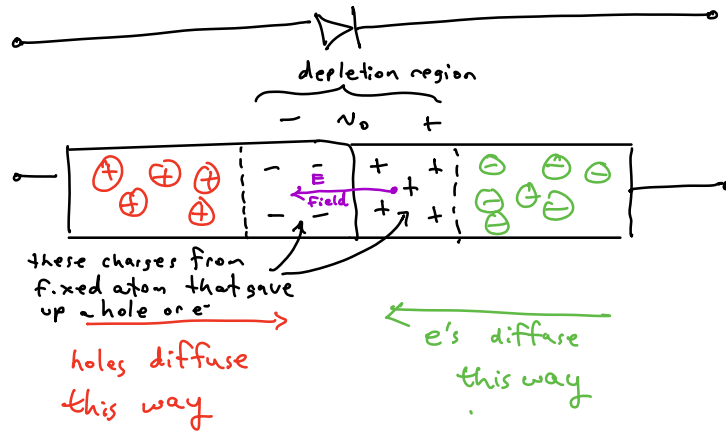 depletion region
- v₀ +
E
field
these charges from
fixed atom that gave
up a hole or e⁻
holes diffuse
this way
e's diffuse
this way